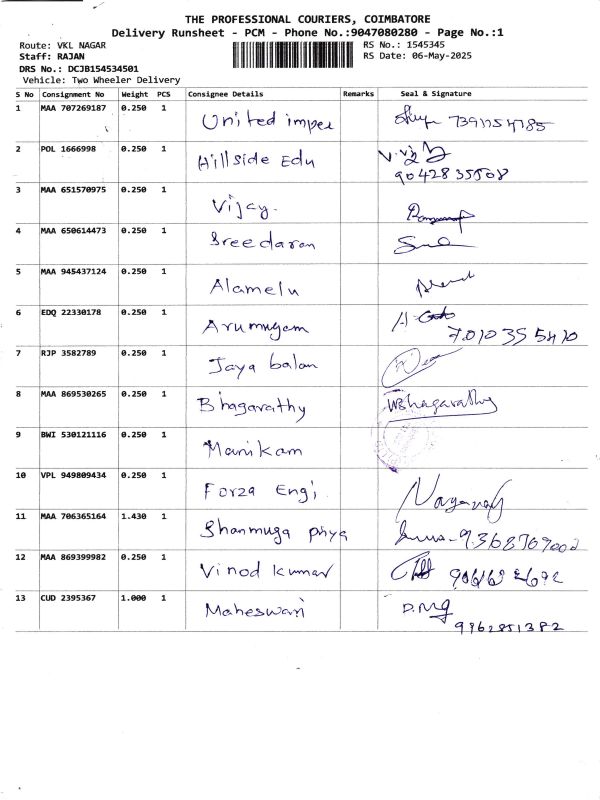 THE PROFESSIONAL COURIERS, COIMBATORE
Delivery Runsheet - PCM - Phone No.:9047080280 - Page No.:1
Route: VKL NAGAR
RS No.: 1545345
Staff: RAJAN
RS Date: 06-May-2025
DRS No.: DCJB154534501
Vehicle: Two Wheeler Delivery
S No Consignment No Weight PCS Consignee Details Remarks Seal & Signature
1 MAA 707269187 0.250 1 United impex
2 POL 1666998 0.250 1 Hillside Edu
9042835508
3 MAA 651570975 0.250 1 Vijay.
4 MAA 650614473 0.250 1 Sreedaran
5 MAA 945437124 0.250 1 Alamelu
6 EDQ 22330178 0.250 1 Arumugam
7010355410
7 RJP 3582789 0.250 1 Jaya balan
8 MAA 869530265 0.250 1 Bhagarathy Bhagarathy
9 BWI 530121116 0.250 1 Manikam
10 VPL 949809434 0.250 1 Forza Engi,
11 MAA 706365164 1.430 1 Shanmuga priya
12 MAA 869399982 0.250 1 Vinod kumar
13 CUD 2395367 1.000 1 Maheswari
9962851382